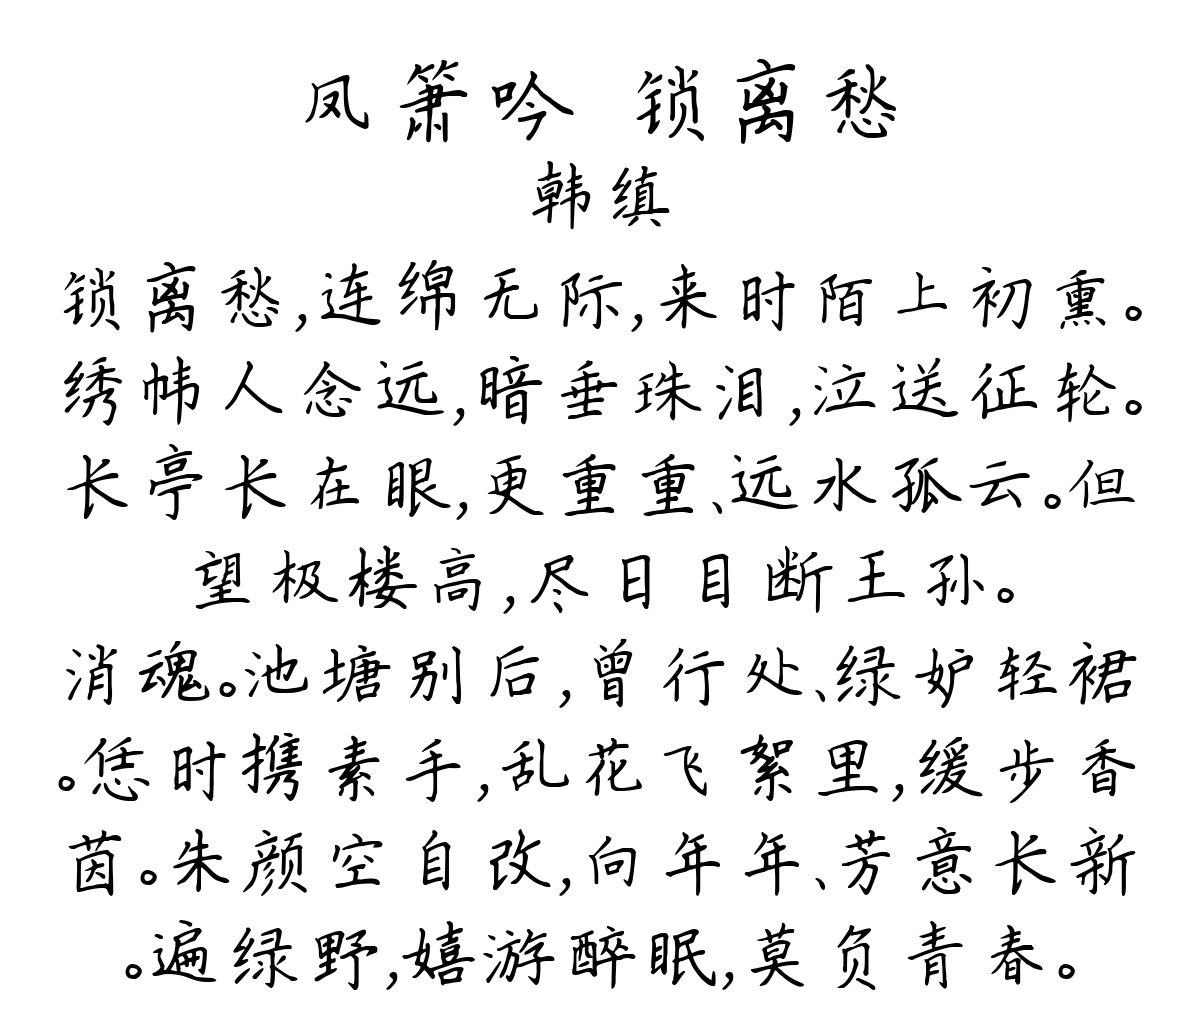 凤箫吟 锁离愁
韩缜
锁离愁,连绵无际,来时陌上初熏。
绣帏人念远,暗垂珠泪,泣送征轮。
长亭长在眼,更重重、远水孤云。但
望极楼高,尽日目断王孙。
消魂。池塘别后,曾行处、绿妒轻裙
。恁时携素手,乱花飞絮里,缓步香
茵。朱颜空自改,向年年、芳意长新
。遍绿野,嬉游醉眠,莫负青春。